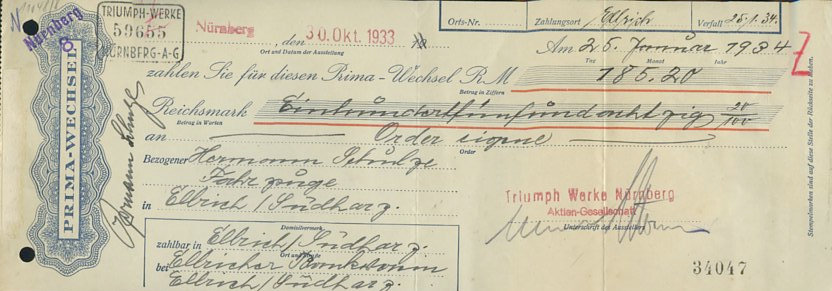 Nürnberg
TRIUMPH-WERKE
59655
NÜRNBERG-A-G
Nürnberg, den 30. Okt. 1933 19
Ort und Datum der Ausstellung
Orts-Nr. Zahlungsort Ellrich Verfall 25.1.34.
Am 25. Januar 1934
Tag Monat Jahr
zahlen Sie für diesen Prima-Wechsel RM 185.20
Betrag in Ziffern
Reichsmark Einhundertfünfundachtzig 20/100
Betrag in Worten
an Order eigene
Order
Bezogener Hermann Schulze
Fahrzeuge
in Ellrich/Südharz.
Domizilvermerk
zahlbar in Ellrich/Südharz.
Ort und Straße
bei Ellricher Bankverein
Ellrich/Südharz.
Triumph Werke Nürnberg
Aktien-Gesellschaft
Unterschrift des Ausstellers
34047
PRIMA-WECHSEL
Hermann Schulze
Stempelmarken sind auf diese Stelle der Rückseite zu kleben.